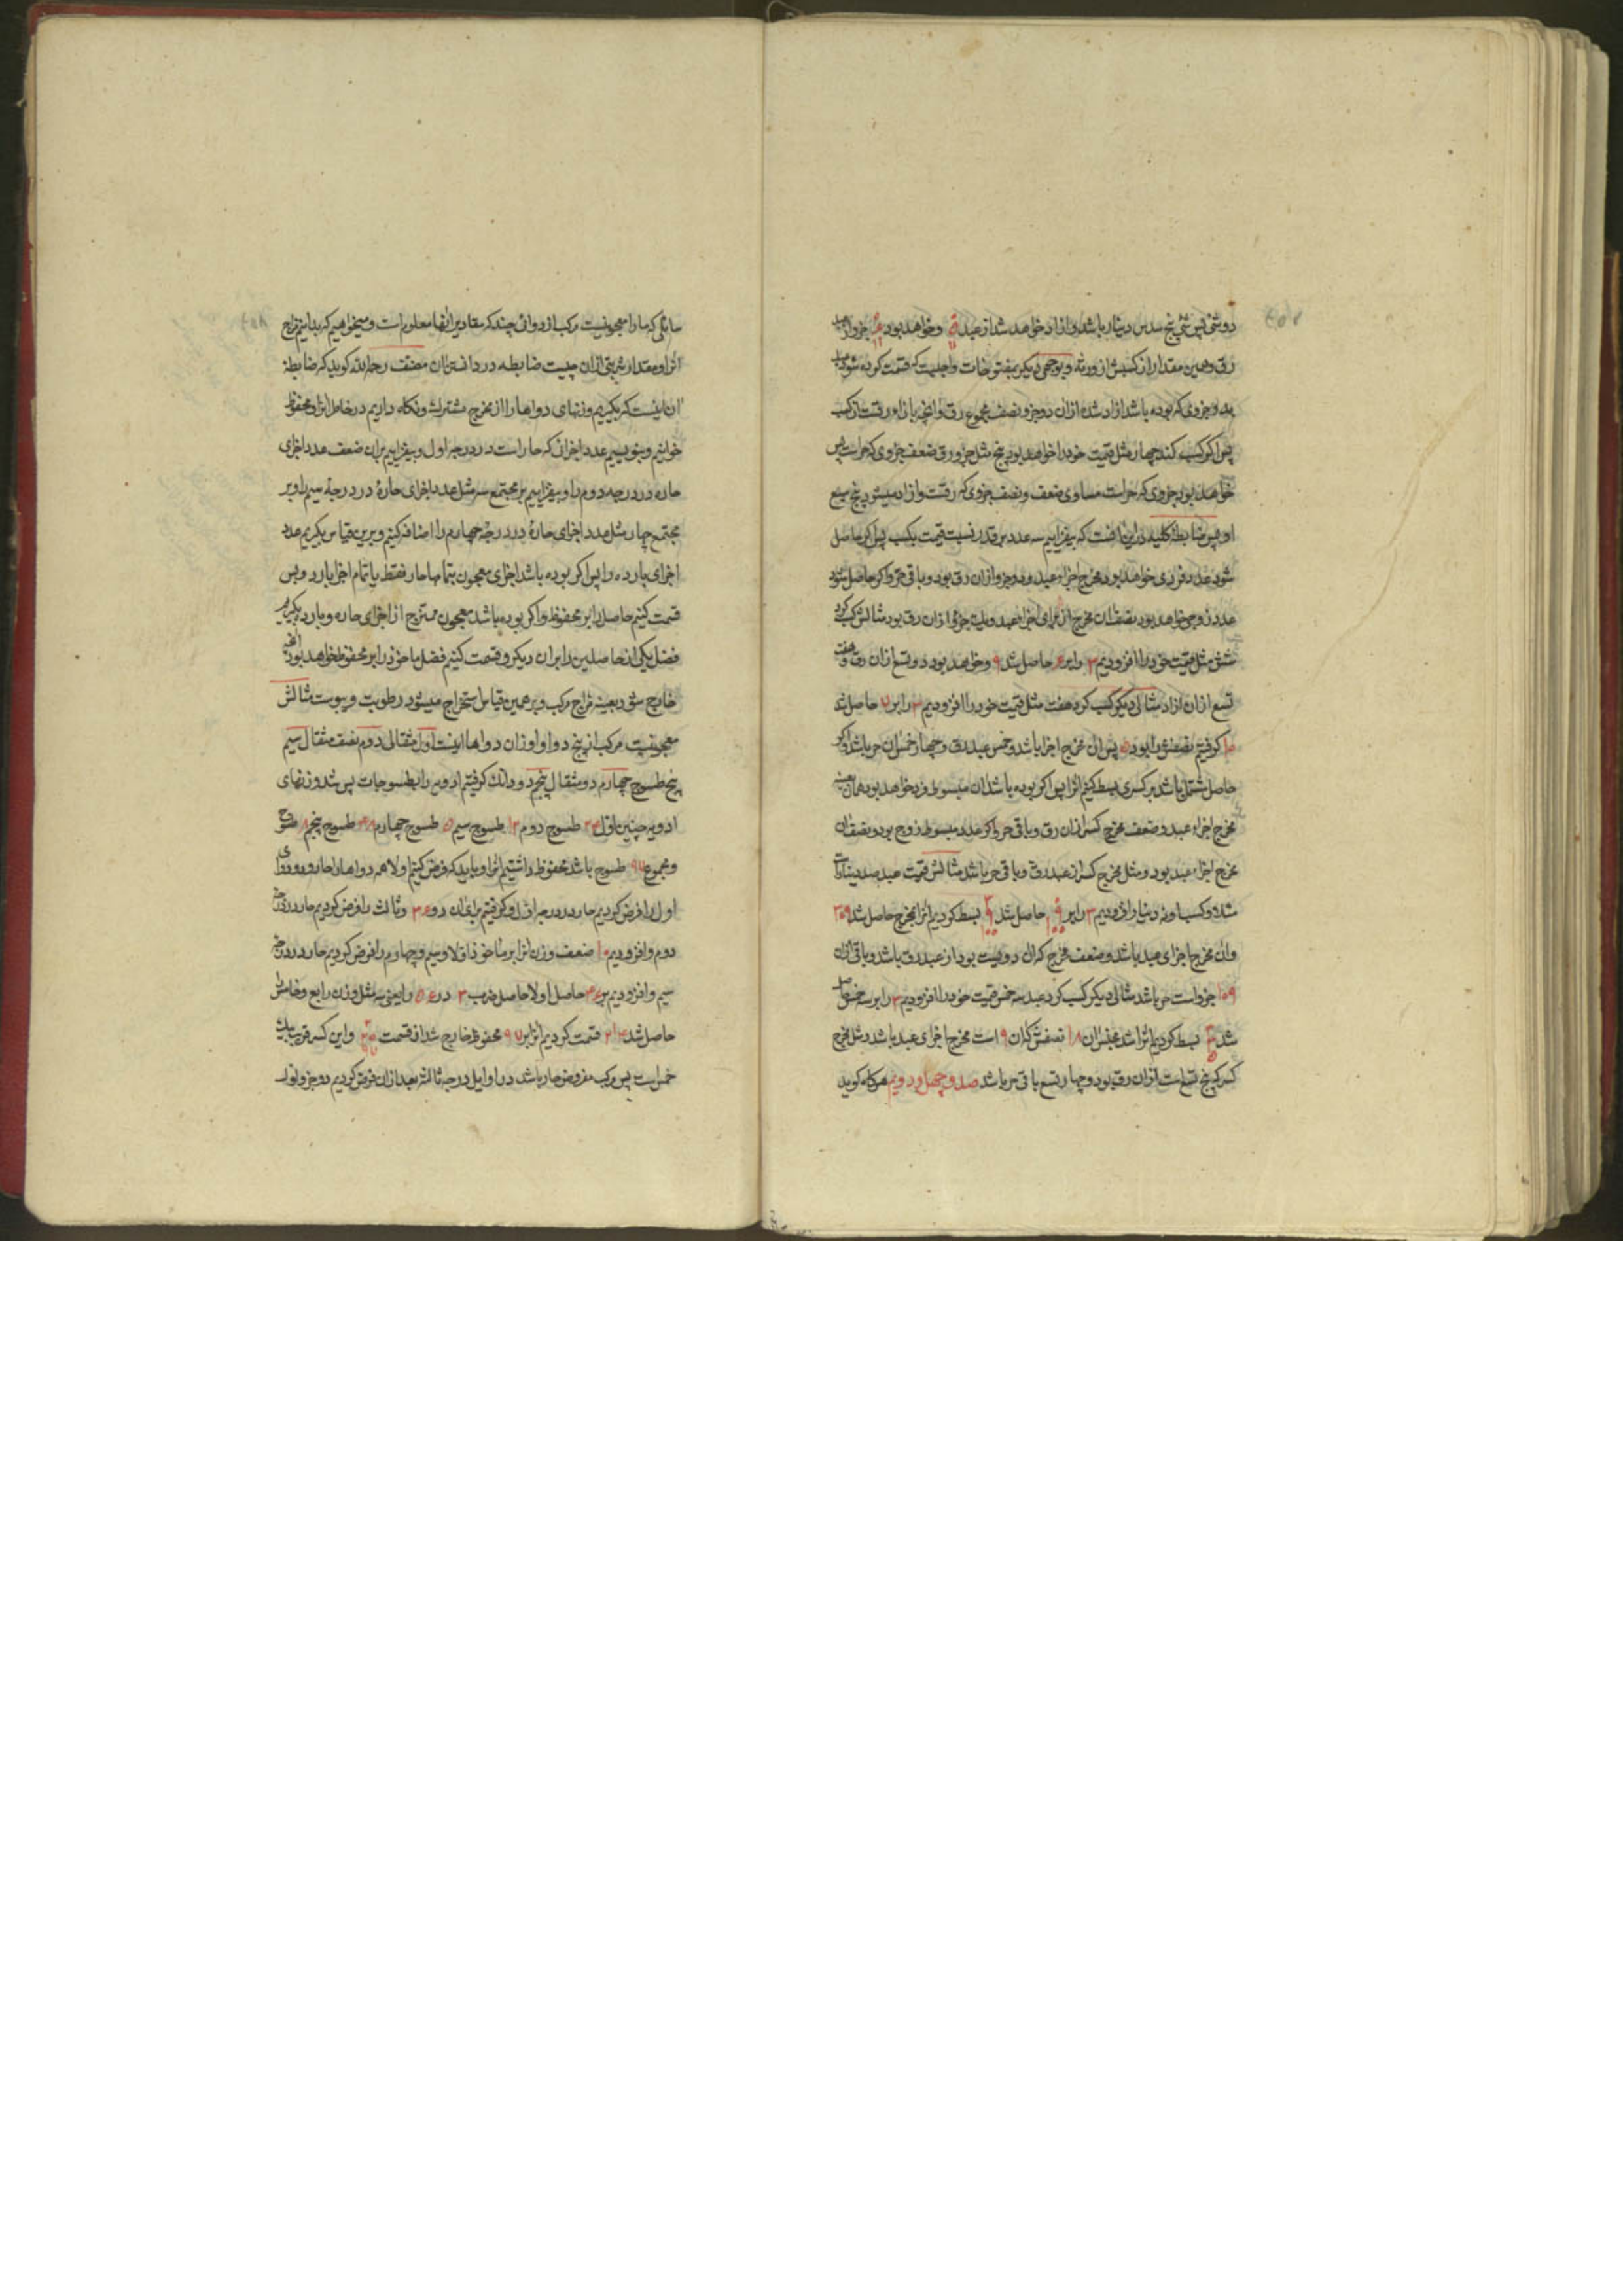 دو شی پس شی پنج سدس دینار باشد و ازاد خواهد شد از عبد و خواهد بود جزو از
رق و همین مقدار از کسبش از ورثه و بوجهی دیکر بمفتوحات واجبست که قسمت کرده شود
به و جزوی که بوده باشد ازاد شده ازان دو جزو و نصف مجموع رق و انچه بازاء رقست از کسب
پس اکر کسب کند چهار مثل قیمت خود را خواهد بود پنج مثل جزو رق ضعف جزوی که حر است پس
خواهد بود جزوی که حر است مساوی ضعف و نصف جزوی که رقست و ازاد میشود پنج سبع
او پس ضابطهٔ کلیه در این انست که بیفزاییم سه عدد بر قدر نسبت قیمت بکسب پس اکر حاصل
شود عدد فردی خواهد بود مخرج اجزاء عبد و دو جزو ازان رق بود و باقی حر و اکر حاصل شود
عدد زوجی خواهد بود نصف ان مخرج از برای اجزا عبد و یک جزو ازان رق بود مثالش کسب کرد
شش مثل قیمت خود را افزودیم ۳ را بر ۶ حاصل شد ۹ و خواهد بود دو تسع ازان رق و هفت
تسع ازان ازاد مثالی دیکر کسب کرد هفت مثل قیمت خود را افزودیم ۳ را بر ۷ حاصل شد
۱۰ کرفتیم نصفش را بود ۵ پس ان مخرج اجزا باشد و خمس عبد رق و چهار خمس ان حر باشد و اکر
حاصل مشتمل باشد بر کسری بسط کنیم انرا پس اکر بوده باشد ان مبسوط فرد خواهد بود همان بعینه
مخرج اجزاء عبد و ضعف مخرج کسر ازان رق و باقی حر و اکر عدد مبسوط زوج بود و نصف ان
مخرج اجزاء عبد بود و مثل مخرج کسر از عبد رق و باقی حر باشد مثالش قیمت عبد صد دینار
شد و کسب او نه دینار افزودیم ۳ را بر حاصل شد بسط کردیم انرا بمخرج حاصل شد ۳۰۹
وان مخرج اجزای عبد باشد و ضعف مخرج کسر ان دویست بود از عبد رق باشد و باقی ازان
۱۰۹ جزو است حر باشد مثالی دیکر کسب کرد عبد سه خمس قیمت خود را افزودیم ۳ را بر سه خمس حاصل
شد بسط کردیم انرا شد مجنس ان ۱۸ نصفش که ان ۹ است مخرج اجزای عبد باشد و مثل مخرج
کسر که پنج تسع است ازان رق بود و چهار تسع باقی حر باشد صد و چهل و دویم هرکاه کوید
سائلی که ما را معجونیست مرکب از دوائی چند که مقادیر انها معلوم است و میخواهیم که بدانیم مزاج
انرا و مقدار شربتی ازان چیست ضابطه در دانستن ان مصنف رحمه الله کوید که ضابطه
ان اینست که بکیریم وزنهای دواها را از مخرج مشترک و نکاه داریم در خاطر انرا و محفوظ
خوانیم و بنویسیم عدد اجزائی که حار است در درجه اول و بیفزاییم بران ضعف عدد اجزای
حاره در درجه دوم را و بیفزاییم بر مجتمع سه مثل عدد اجزای حارهٔ در درجهٔ سیم را و بر
مجتمع چار مثل عدد اجزای حارهٔ در درجهٔ چهارم را اضافه کنیم و برین قیاس بکیریم عدد
اجزای بارده را پس اکر بوده باشد اجزای معجون بتمامها حار فقط یا تمام اجزا بارد و بس
قسمت کنیم حاصل را بر محفوظ و اکر بوده باشد معجون ممتزج از اجزای حاره و بارده بکیریم
فضل یکی از حاصلین را بران دیکر و قسمت کنیم فضل ماخوذ را بر محفوظ خواهد بود انچه
خارج شود بعینه مزاج مرکب و بر همین قیاس استخراج میشود رطوبت و یبوست مثالش
معجونیست مرکب از پنج دوا و اوزان دواها اینست اول مثقالی دوم نصف مثقال سیم
پنج طسوج چهارم دو مثقال پنجم دو دانک کرفتیم ادویه را بطسوجات پس شد وزنهای
ادویه چنین اول ۲۴ طسوج دوم ۱۲ طسوج سیم ۵ طسوج چهارم ۴۸ طسوج پنجم ۸ طسوج
و مجموع ۹۷ طسوج باشد محفوظ داشتیم انرا و باید که فرض کنیم اولا همه دواها را حار و دوای
اول را فرض کردیم حار در درجه اول و کرفتیم برای ان ۲۴ و ثالث را فرض کردیم حار در درجه
دوم و افزودیم ۱۰ ضعف وزن انرا بر ماخوذ اولا و سیم و چهارم را فرض کردیم حار در درجه
سیم و افزودیم بر ۳۴ حاصل اولا حاصل ضرب ۳ در ۵۶ را یعنی سه مثل وزن رابع و خامس را
حاصل شد ۲۰۲ قسمت کردیم انرا بر ۹۷ محفوظ خارج شد از قسمت و این کسر قریب بیک
خمس است پس مرکب مفروض حار باشد در اوایل درجه ثالثه بعد ازان فرض کردیم دو جزو اول